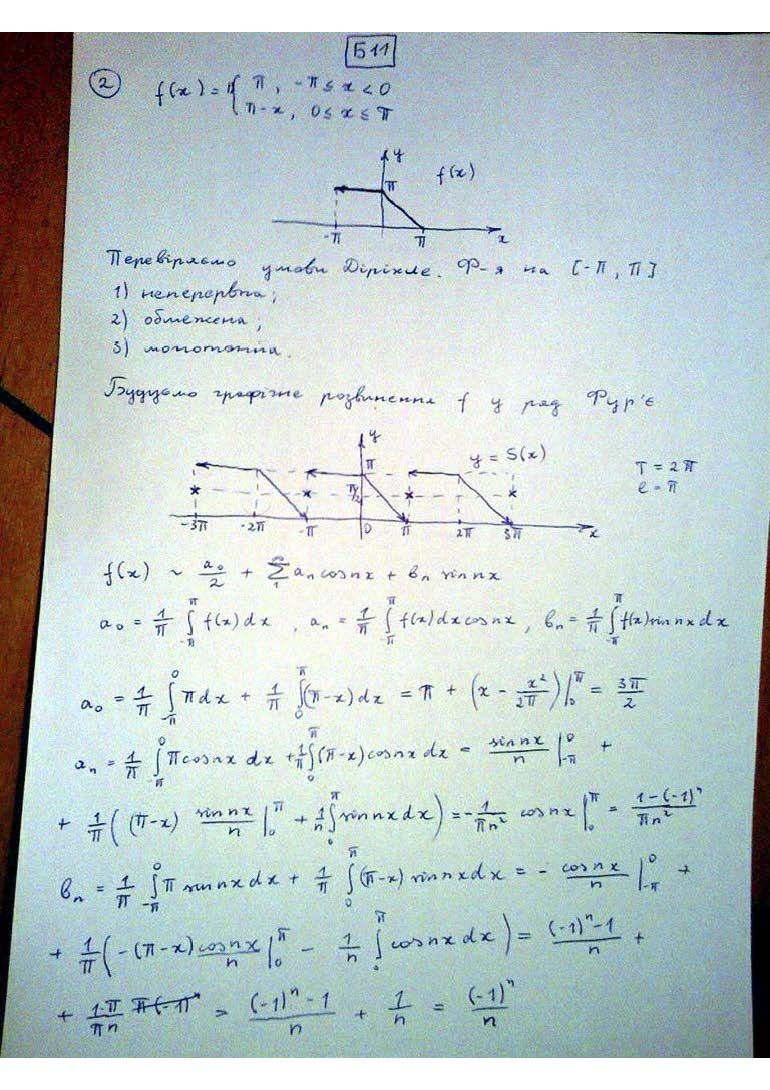 Б11
② f(x) = { π, -π ≤ x < 0
π-x, 0 ≤ x ≤ π
y
π f(x)
-π π x
Перевіряємо умови Діріхле. Ф-я на [-π, π]
1) неперервна;
2) обмежена;
3) монотонна.
Будуємо графічне розвинення f у ряд Фур'є
y
π y = S(x) T = 2π
π/2 ℓ = π
-3π -2π -π 0 π 2π 3π x
f(x) ~ a₀/2 + ∑₁^∞ aₙ cos nx + bₙ sin nx
a₀ = 1/π ∫_{-π}^{π} f(x) dx , aₙ = 1/π ∫_{-π}^{π} f(x) dx cos nx , bₙ = 1/π ∫_{-π}^{π} f(x) sin nx dx
a₀ = 1/π ∫_{-π}^{0} π dx + 1/π ∫_{0}^{π} (π-x) dx = π + (x - x²/2π)|_{0}^{π} = 3π/2
aₙ = 1/π ∫_{-π}^{0} π cos nx dx + 1/π ∫_{0}^{π} (π-x) cos nx dx = sin nx/n |_{-π}^{0} +
+ 1/π ( (π-x) sin nx/n |_{0}^{π} + 1/n ∫_{0}^{π} sin nx dx ) = - 1/πn² cos nx |_{0}^{π} = 1-(-1)ⁿ/πn²
bₙ = 1/π ∫_{-π}^{0} π sin nx dx + 1/π ∫_{0}^{π} (π-x) sin nx dx = - cos nx/n |_{-π}^{0} +
+ 1/π ( -(π-x) cos nx/n |_{0}^{π} - 1/n ∫_{0}^{π} cos nx dx ) = (-1)ⁿ-1/n +
+ 1·π/πn = (-1)ⁿ-1/n + 1/n = (-1)ⁿ/n